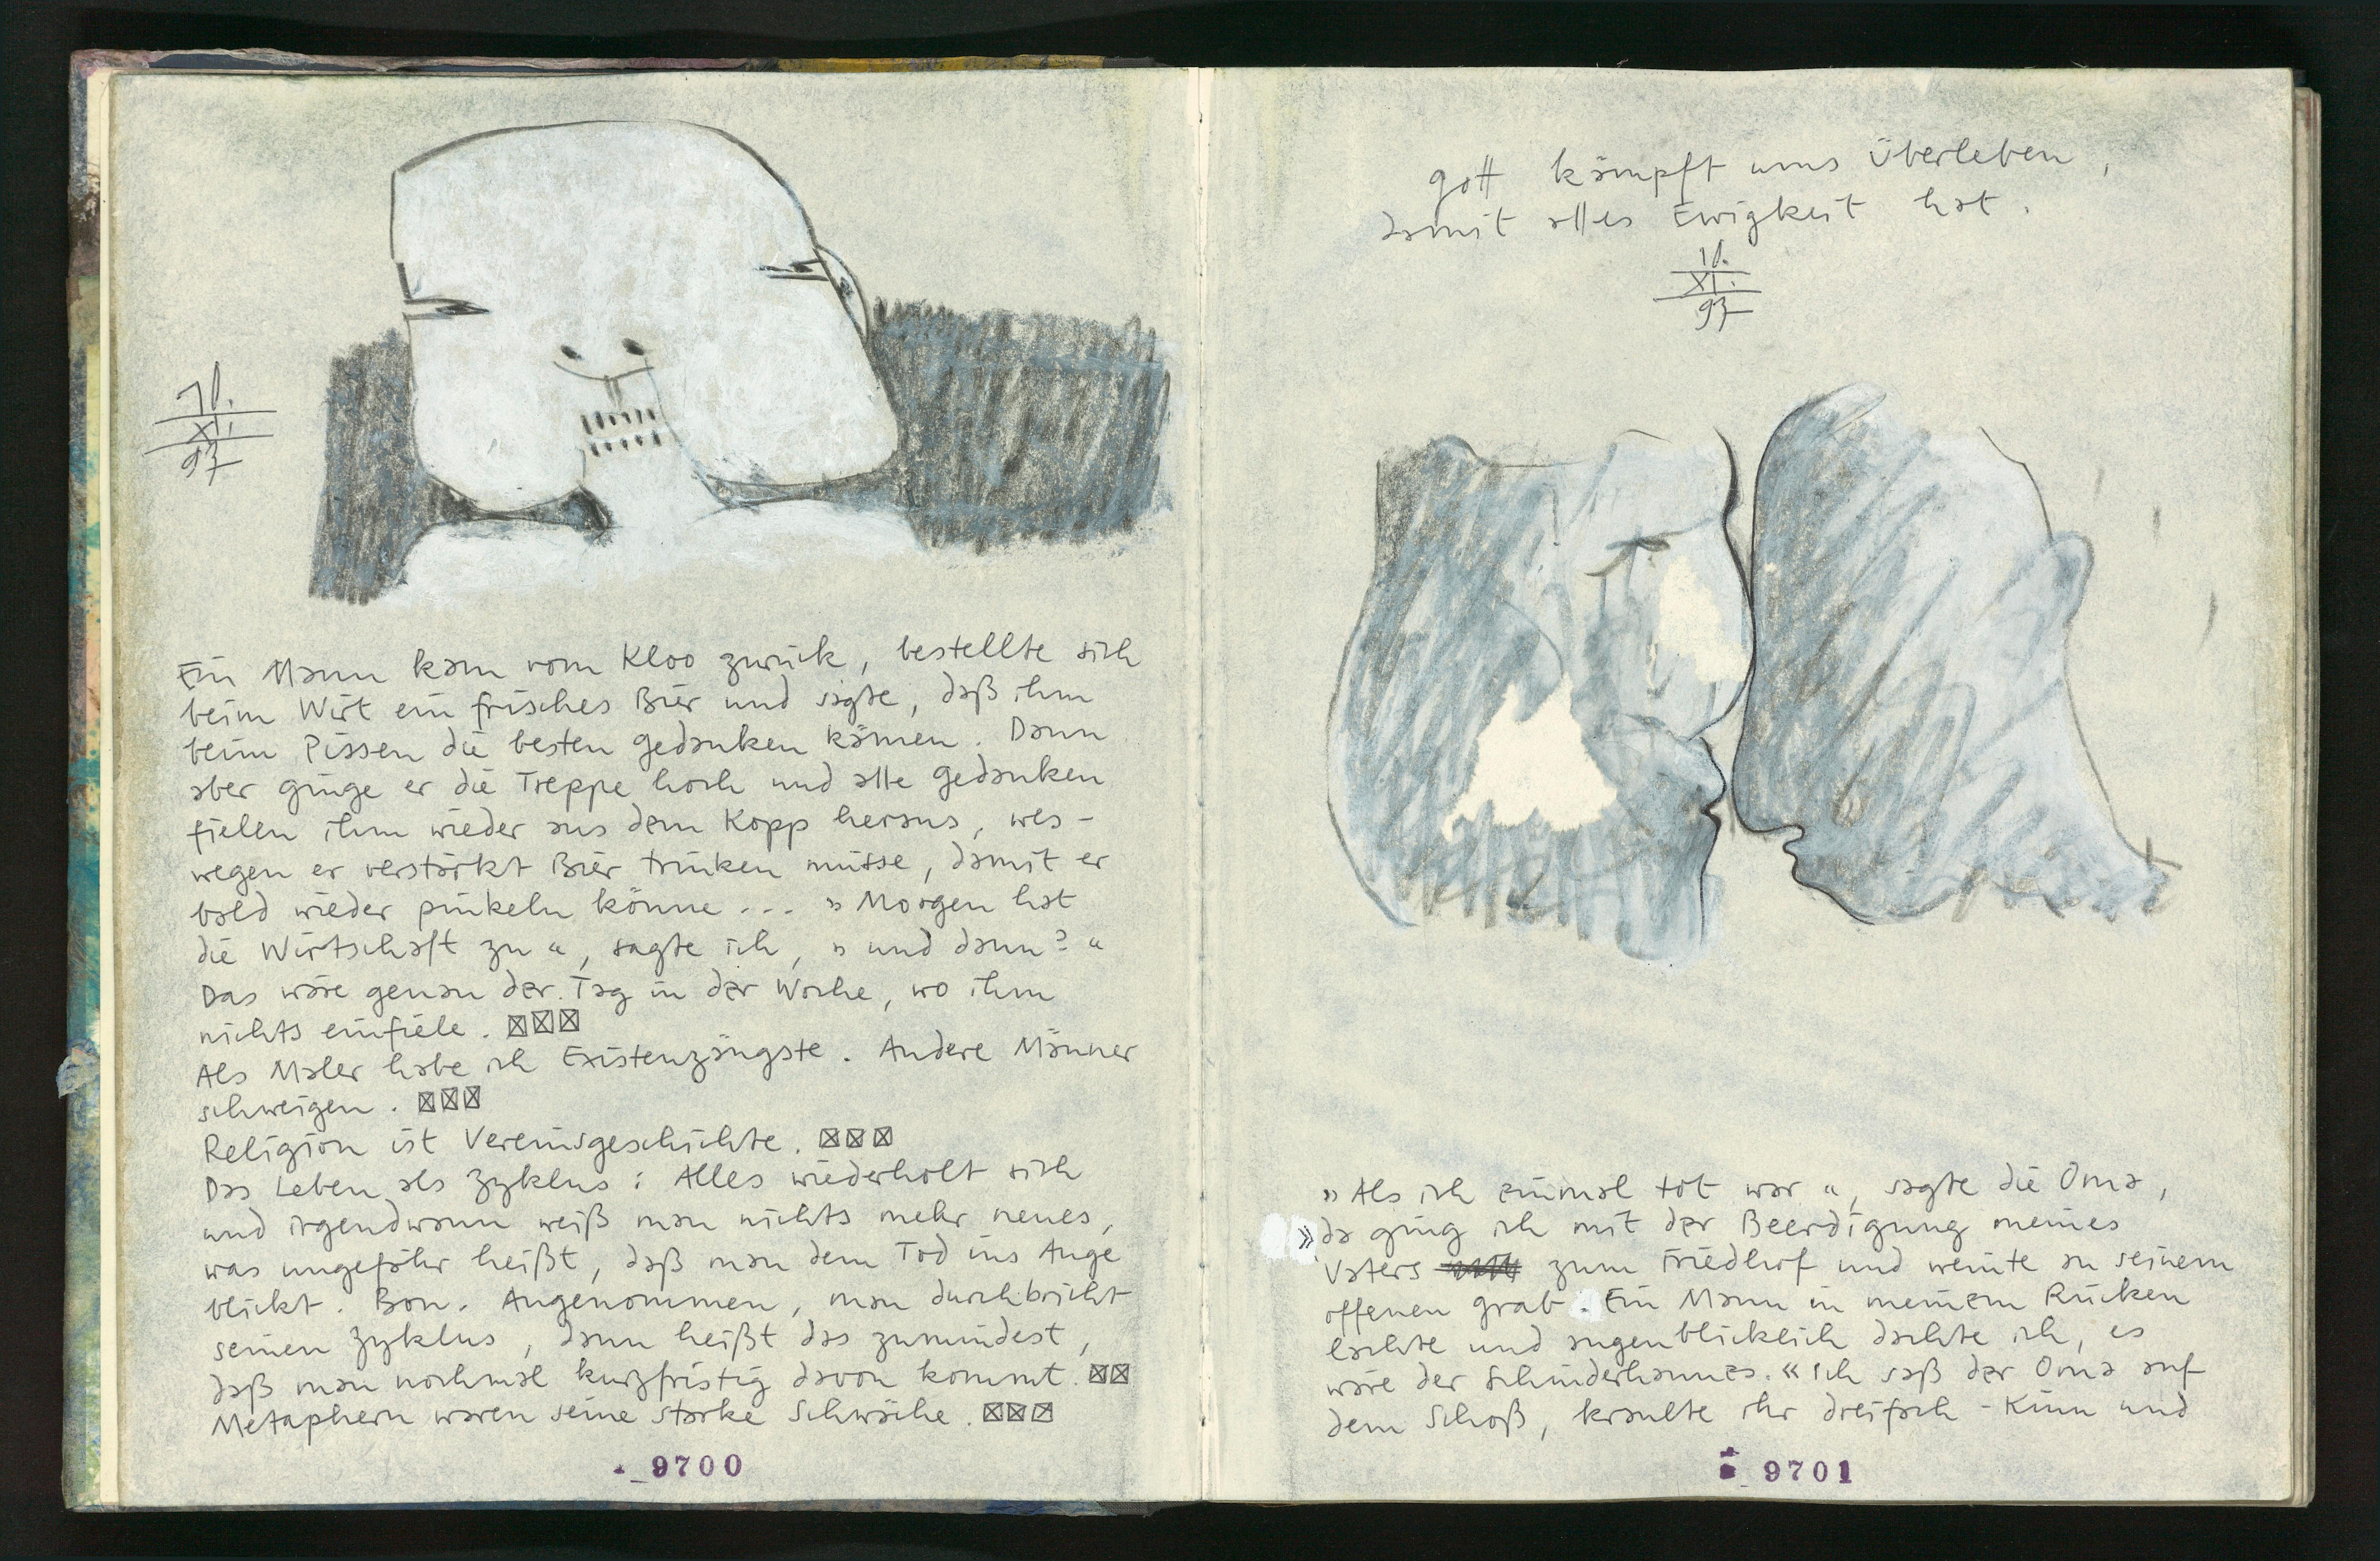 10.
XI.
97
Ein Mann kam vom Kloo zurück, bestellte sich
beim Wirt ein frisches Bier und sagte, daß ihm
beim Pissen die besten gedanken kämen. Dann
aber ginge er die Treppe hoch und alle gedanken
fielen ihm wieder aus dem Kopp heraus, wes-
wegen er verstärkt Bier trinken müsse, damit er
bald wieder pinkeln könne... » Morgen hat
die Wirtschaft zu «, sagte ich, » und dann? «
Das wäre genau der Tag in der Woche, wo ihm
nichts einfiele. ☒☒☒
Als Maler habe ich Existenzängste. Andere Männer
schweigen. ☒☒☒
Religion ist Vereinsgeschichte. ☒☒☒
Das Leben als Zyklus: Alles wiederholt sich
und irgendwann weiß man nichts mehr neues,
was ungefähr heißt, daß man dem Tod ins Auge
blickt. Bon. Angenommen, man durchbricht
seinen Zyklus, dann heißt das zumindest,
daß man nochmal kurzfristig davon kommt. ☒☒
Metaphern waren seine starke Schwäche. ☒☒☒
9700
gott kämpft ums Überleben,
damit alles Ewigkeit hat.
10.
XI.
97
» Als ich einmal tot war «, sagte die Oma,
» da ging ich mit der Beerdigung meines
Vaters zum Friedhof und weinte an seinem
offenen grab. Ein Mann in meinem Rücken
lachte und augenblicklich dachte ich, es
wäre der Schinderhannes. « Ich saß der Oma auf
dem Schoß, kraulte ihr dreifach-Kinn und
9701